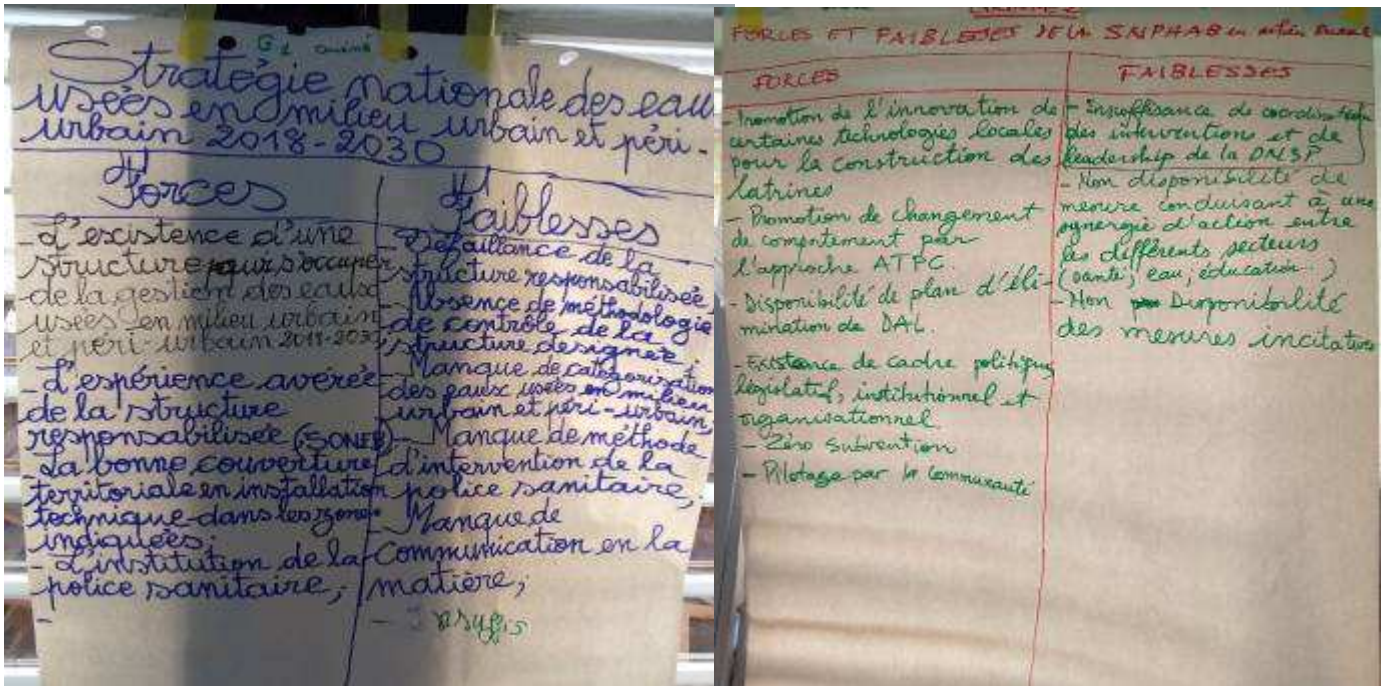 G1
Stratégie nationale des eaux
usées en milieu urbain et péri-
urbain 2018-2030
Forces
- L'existence d'une
structure pour s'occuper
de la gestion des eaux
usées en milieu urbain
et péri-urbain
- L'expérience avérée
de la structure
responsabilisée (SONEB)
- La bonne couverture
territoriale en installation
technique dans les zones
indiquées;
- L'institution de la
police sanitaire;
-
Faiblesses
- Défaillance de la
structure responsabilisée
- Absence de méthodologie
de contrôle de la
structure designée;
- Manque de catégorisation
des eaux usées en milieu
urbain et péri-urbain,
- Manque de méthode
d'intervention de la
police sanitaire,
- Manque de
communication en la
matière;
-
FORCES ET FAIBLESSES DE LA en milieu
FORCES
- Promotion de l'innovation de
certaines technologies locales
pour la construction des
latrines
- Promotion de changement
de comportement par
l'approche ATPC.
- Disponibilité de plan d'éli-
mination de DAL.
- Existence de cadre politique,
législatif, institutionnel et
organisationnel
- Zéro subvention
- Pilotage par la communauté
FAIBLESSES
- Insuffisance de coordination
des interventions et de
leadership de la DNSP
- Non disponibilité de
mesure conduisant à une
synergie d'action entre
les différents secteurs
(santé, eau, éducation..)
- Non Disponibilité
des mesures incitatives